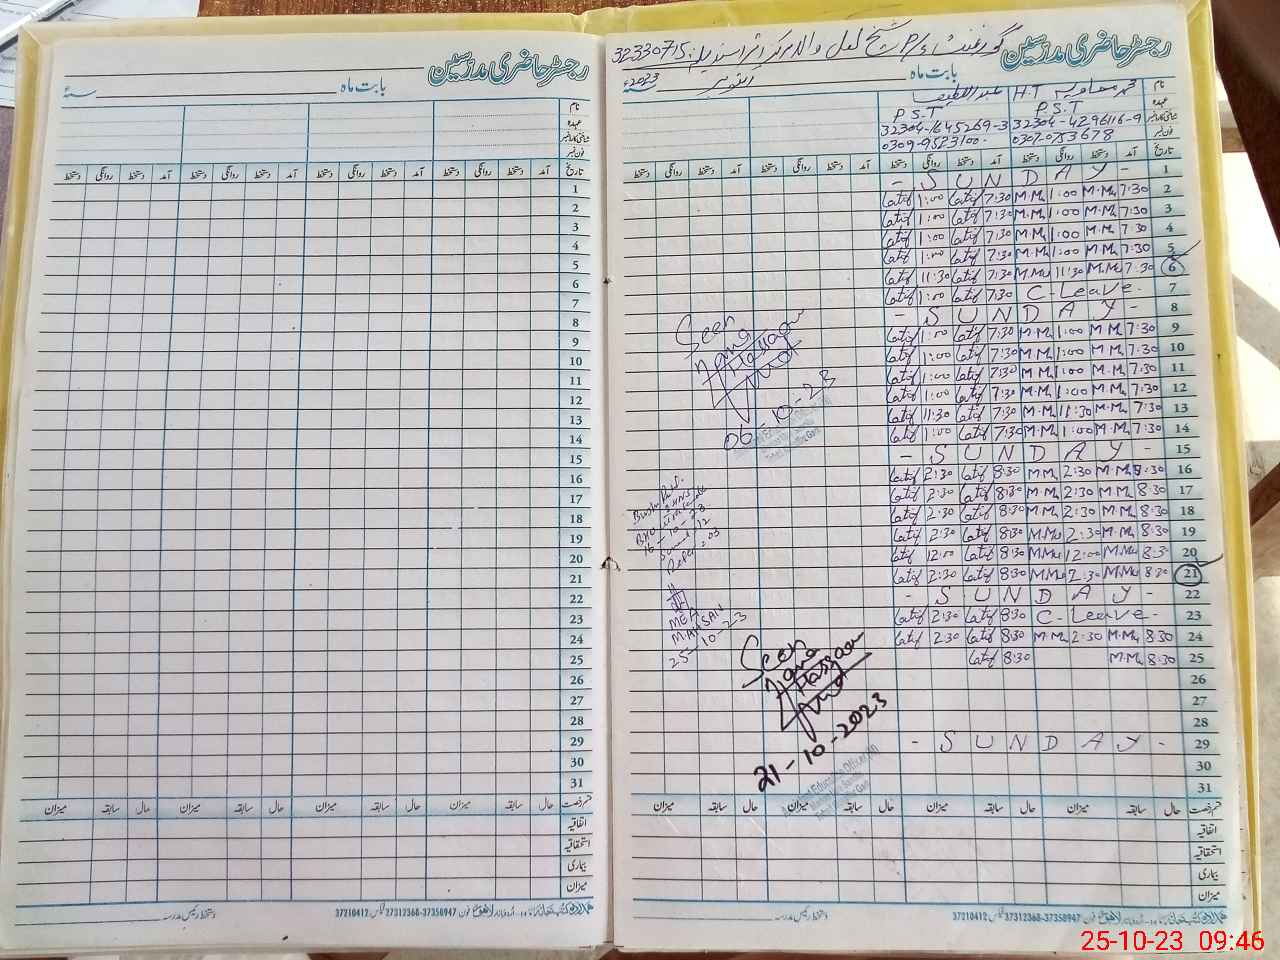 رجسٹر حاضری مدرسین
بابت ماه
نام
عہدہ
شناختی کارڈ نمبر
فون نمبر
تاریخ آمد دستخط روانگی دستخط آمد دستخط روانگی دستخط آمد دستخط روانگی دستخط آمد دستخط روانگی دستخط
1
2
3
4
5
6
7
8
9
10
11
12
13
14
15
16
17
18
19
20
21
22
23
24
25
26
27
28
29
30
31
قسم رخصت حال سابقہ میزان حال سابقہ میزان حال سابقہ میزان حال سابقہ میزان
اتفاقیہ
استحقاقیہ
بیماری
میزان
37210412 37312368-37358947
دستخط رئیس مدرسہ
رجسٹر حاضری مدرسین
گورنمنٹ P/S شیخ لعل والا 32330715
بابت ماه اکتوبر 2023
نام H.T عبداللطیف
عہدہ P.S.T P.S.T
شناختی کارڈ نمبر 32304-4296116-9 32304-1645269-3
فون نمبر 0307-0753678 0309-9523100
تاریخ آمد دستخط روانگی دستخط آمد دستخط روانگی دستخط آمد دستخط روانگی دستخط آمد دستخط روانگی دستخط
- S U N D A Y - 1
Latif 1:00 Latif 7:30 M.M 1:00 M.M 7:30 2
Latif 1:00 Latif 7:30 M.M 1:00 M.M 7:30 3
Latif 1:00 Latif 7:30 M.M 1:00 M.M 7:30 4
Latif 1:00 Latif 7:30 M.M 1:00 M.M 7:30 5
Latif 11:30 Latif 7:30 M.M 11:30 M.M 7:30 6
Latif 1:00 Latif 7:30 C-Leave. 7
- S U N D A Y - 8
Latif 1:00 Latif 7:30 M.M 1:00 M.M 7:30 9
Latif 1:00 Latif 7:30 M.M 1:00 M.M 7:30 10
Latif 1:00 Latif 7:30 M.M 1:00 M.M 7:30 11
Latif 1:00 Latif 7:30 M.M 1:00 M.M 7:30 12
Latif 11:30 Latif 7:30 M.M 11:30 M.M 7:30 13
Latif 1:00 Latif 7:30 M.M 1:00 M.M 7:30 14
- S U N D A Y - 15
Latif 2:30 Latif 8:30 M.M 2:30 M.M 8:30 16
Latif 2:30 Latif 8:30 M.M 2:30 M.M 8:30 17
Latif 2:30 Latif 8:30 M.M 2:30 M.M 8:30 18
Latif 2:30 Latif 8:30 M.M 2:30 M.M 8:30 19
Latif 12:00 Latif 8:30 M.M 12:00 M.M 8:30 20
Latif 2:30 Latif 8:30 M.M 2:30 M.M 8:30 21
- S U N D A Y - 22
Latif 2:30 Latif 8:30 C-Leave- 23
Latif 2:30 Latif 8:30 M.M 2:30 M.M 8:30 24
Latif 8:30 M.M 8:30 25
26
27
28
- S U N D A Y - 29
30
31
Seen
06-10-23
16-10-23
MEA
MAHSAN
25-10-23
Seen
21-10-2023
قسم رخصت حال سابقہ میزان حال سابقہ میزان حال سابقہ میزان حال سابقہ میزان
اتفاقیہ
استحقاقیہ
بیماری
میزان
37210412 37312368-37358947
دستخط رئیس مدرسہ
25-10-23 09:46